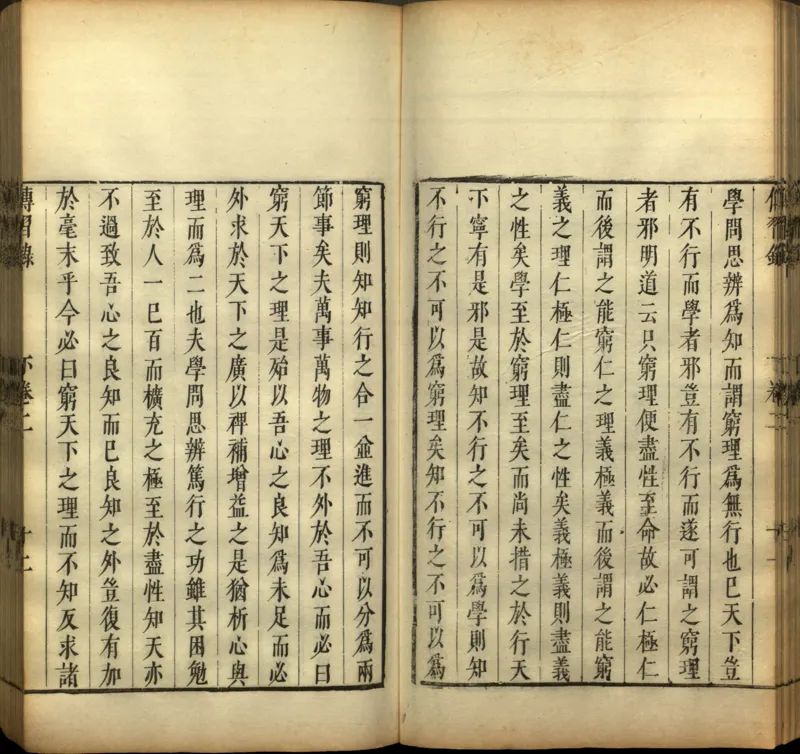 學問思辨爲知而謂窮理爲無行也已天下豈
有不行而學者邪豈有不行而遂可謂之窮理
者邪明道云只窮理便盡性至命故必仁極仁
而後謂之能窮仁之理義極義而後謂之能窮
義之理仁極仁則盡仁之性矣義極義則盡義
之性矣學至於窮理至矣而尚未措之於行天
下寧有是邪是故知不行之不可以爲學則知
不行之不可以爲窮理矣知不行之不可以爲
窮理則知知行之合一並進而不可以分爲兩
節事矣夫萬事萬物之理不外於吾心而必曰
窮天下之理是殆以吾心之良知爲未足而必
外求於天下之廣以裨補增益之是猶析心與
理而爲二也夫學問思辨篤行之功雖其困勉
至於人一已百而擴充之極至於盡性知天亦
不過致吾心之良知而已良知之外豈復有加
於毫末乎今必曰窮天下之理而不知反求諸
傳習錄 下卷二 十二